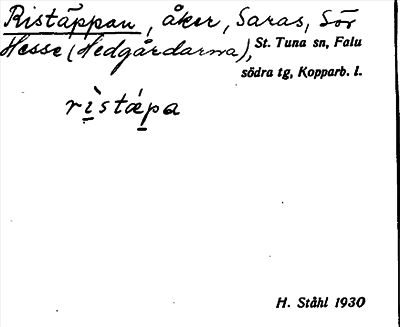 Ristäppan, åker, Saras, Sör
Hesse (Hedgårdarna), St. Tuna sn, Falu
södra tg, Kopparb. l.
rı̣̀stǽp̠a
H. Ståhl 1930